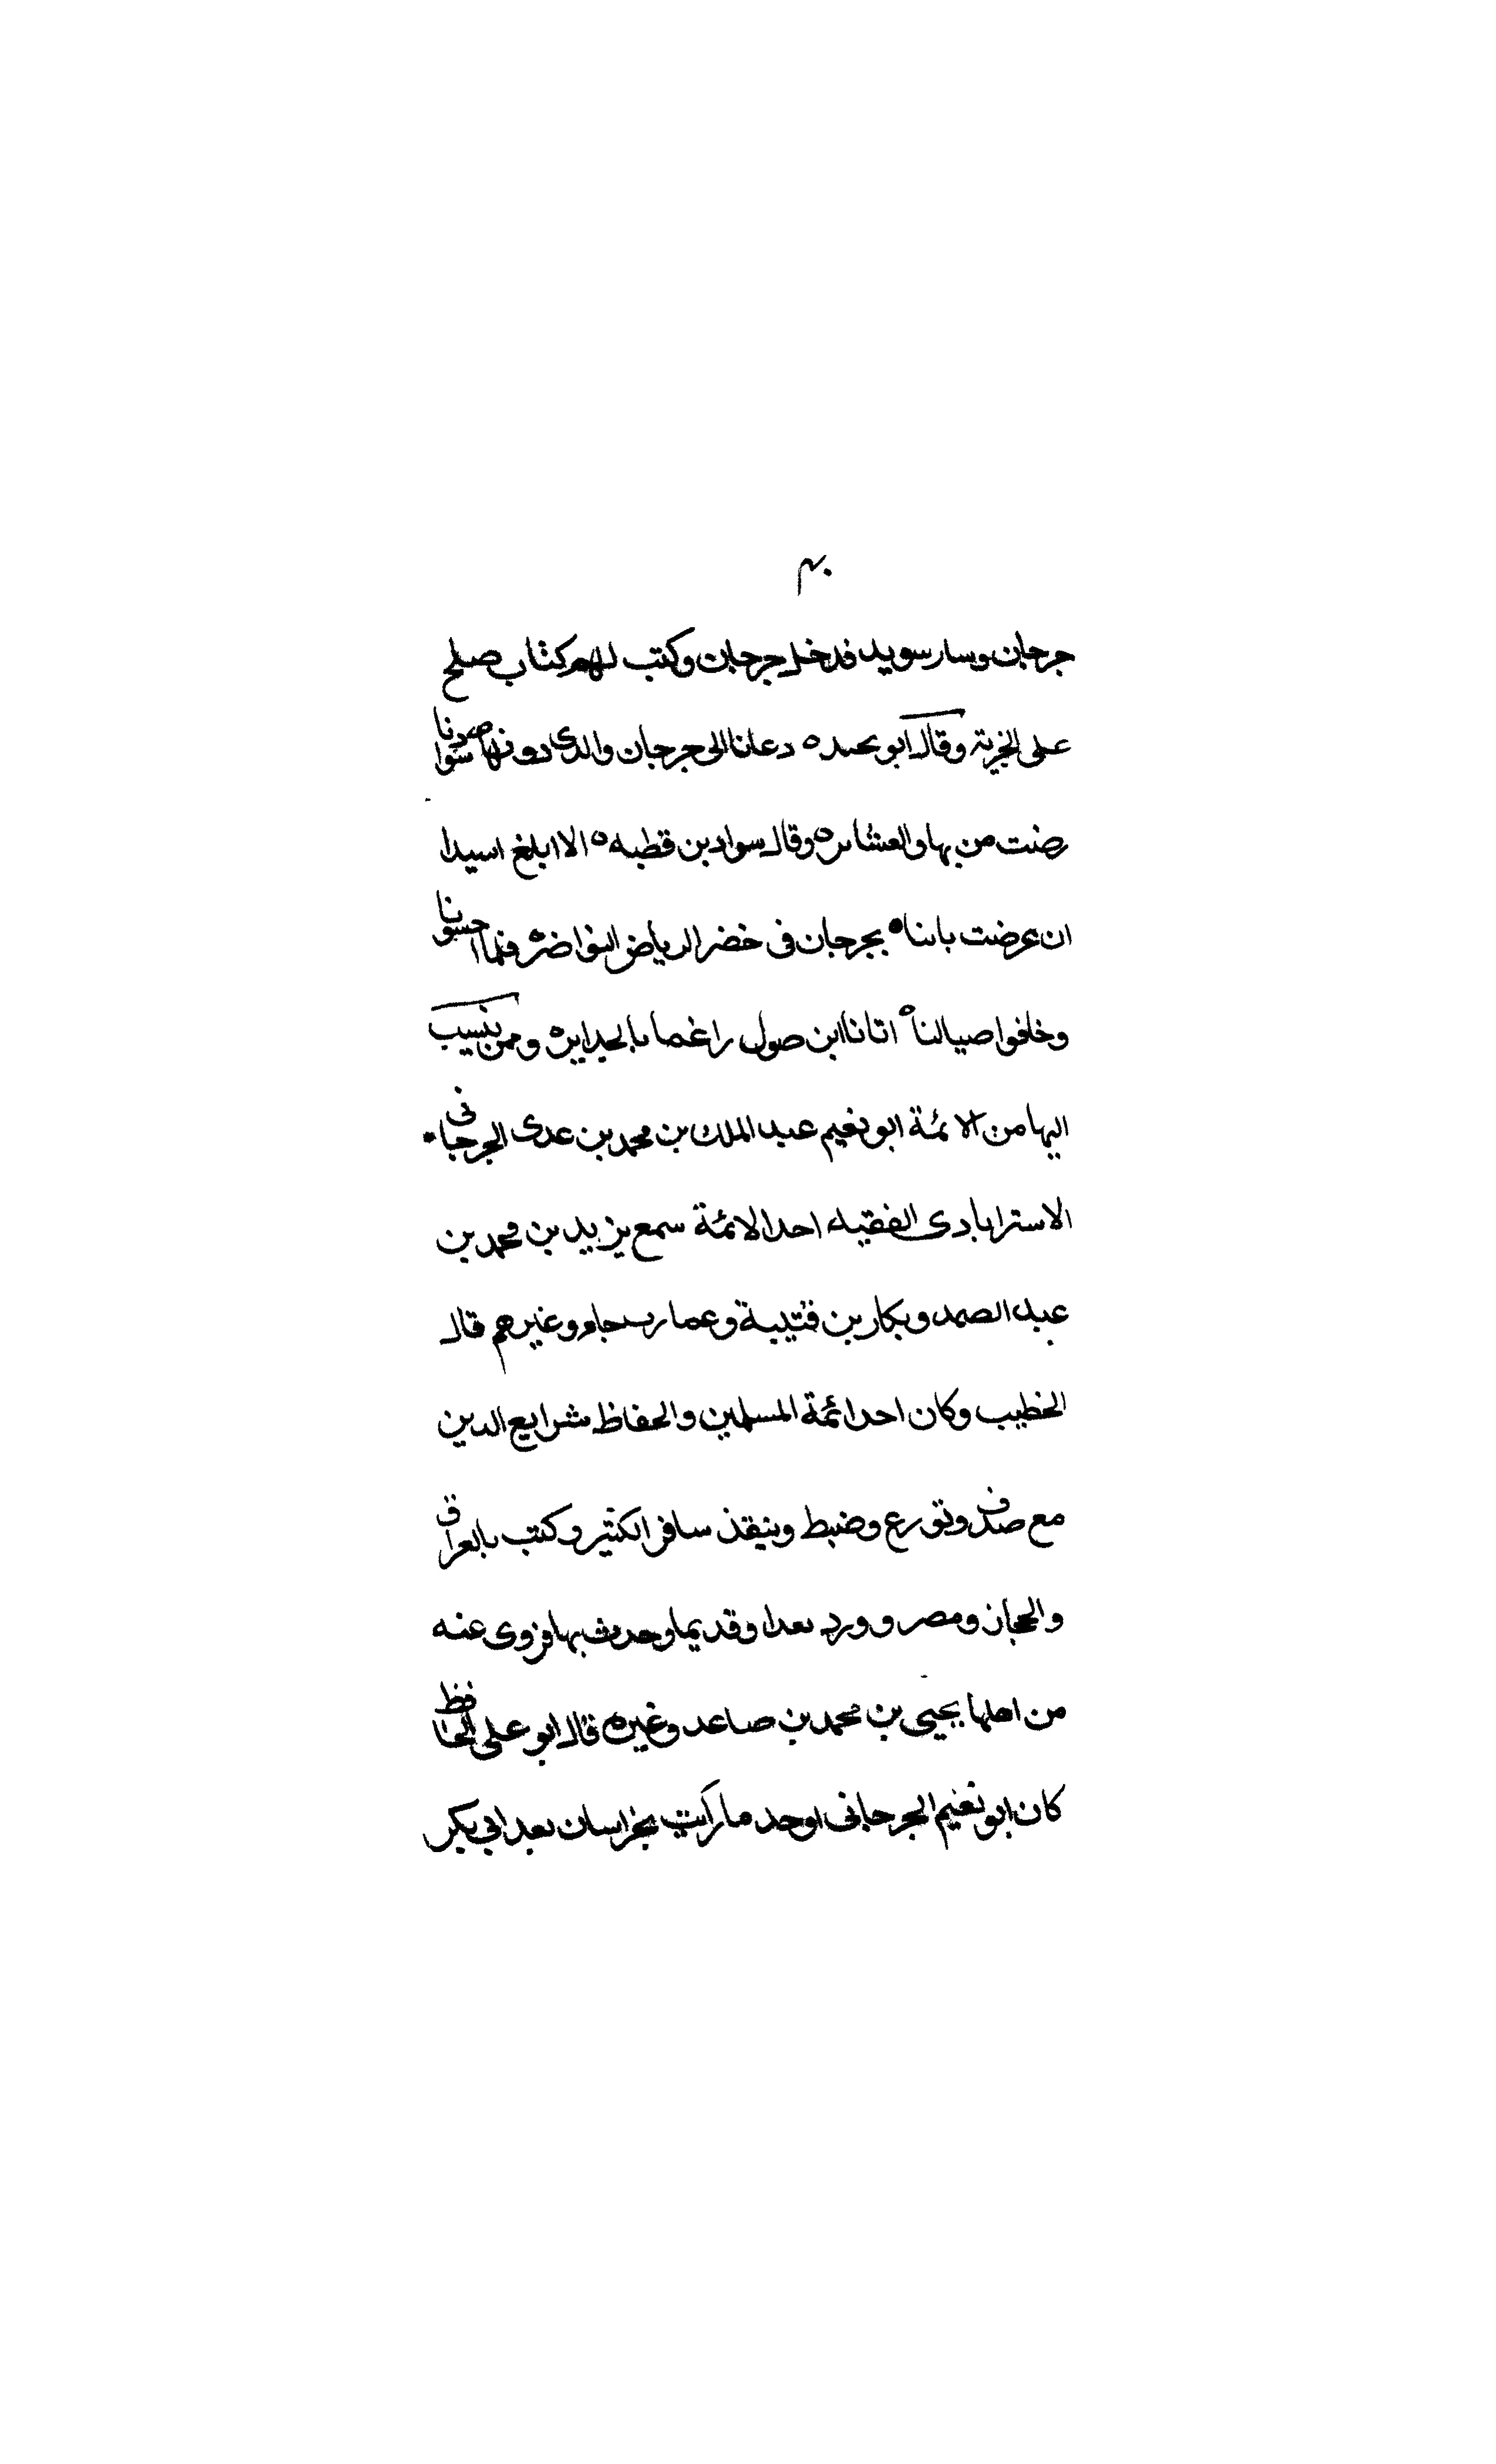 جرجان وسار سويد فدخل جرجان وكتب لهم كتاب صلح
على الجزية وقال ابو بحيده دعانا الى جرجان والدى دونها سوا صدنا
رضت من بها والعشائره وقال سواد بن قطبه ه الا ابلغ اسيدا
ان عرضت باننا ه بجرجان فى خضر الرياض النواضره فلما احسونا
وخافوا صيالنا ه اتانا ابن صول راغما بالجدايره وممن ينسب
اليها من الائمة ابو نعيم عبد الملك بن محمد بن عدى الجرجانى
الاسترابادى الفقيه احد الائمة سمع يزيد بن محمد بن
عبد الصمد وبكار بن قتيبة وعمار بن رجاء وغيرهم قال
الخطيب وكان احد ائمة المسلمين والحفاظ شرايع الدين
مع صدق وتورع وضبط وتيقذ سافر الكثير وكتب بالعراق
والحجاز ومصر وورد بغداد قديما وحدث بها فروى عنه
من اهلها يحيى بن محمد بن صاعد وغيره قال ابو على الحافظ
كان ابو نعيم الجرجانى اوحد ما رأيت بخراسان بعد ابي بكر